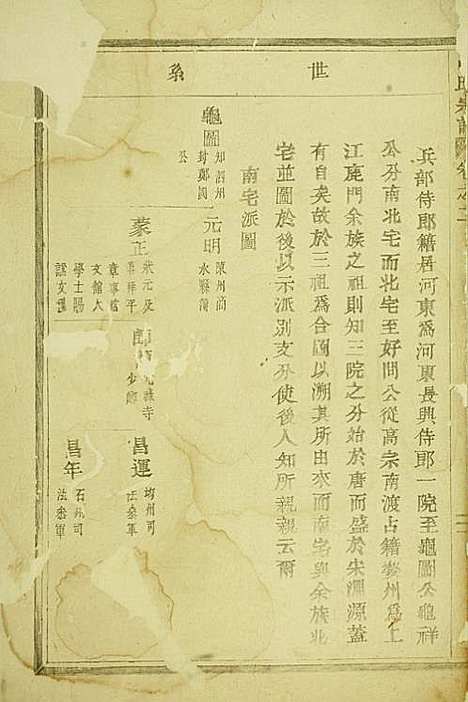 氏宗譜 卷之二
世系
兵部侍郎籍居河東為河東長興侍郎一院至龜圖公龜祥
公分南北宅而北宅至好問公從高宗南渡占籍婺州為上
江鹿門余族之祖則知三院之分始於唐而盛於宋淵源蓋
有自矣故於三祖為合圖以溯其所由來而南宅與余族北
宅並圖於後以示派別支分使後人知所親親云爾
南宅派圖
龜圖
知泗州
封鄭國
公
元明
陳州商
水縣簿
蒙正
狀元及
第拜平
章事當
文館大
學士賜
諡文穆
寺
少卿
昌運
均州司
法參軍
昌年
石州司
法參軍